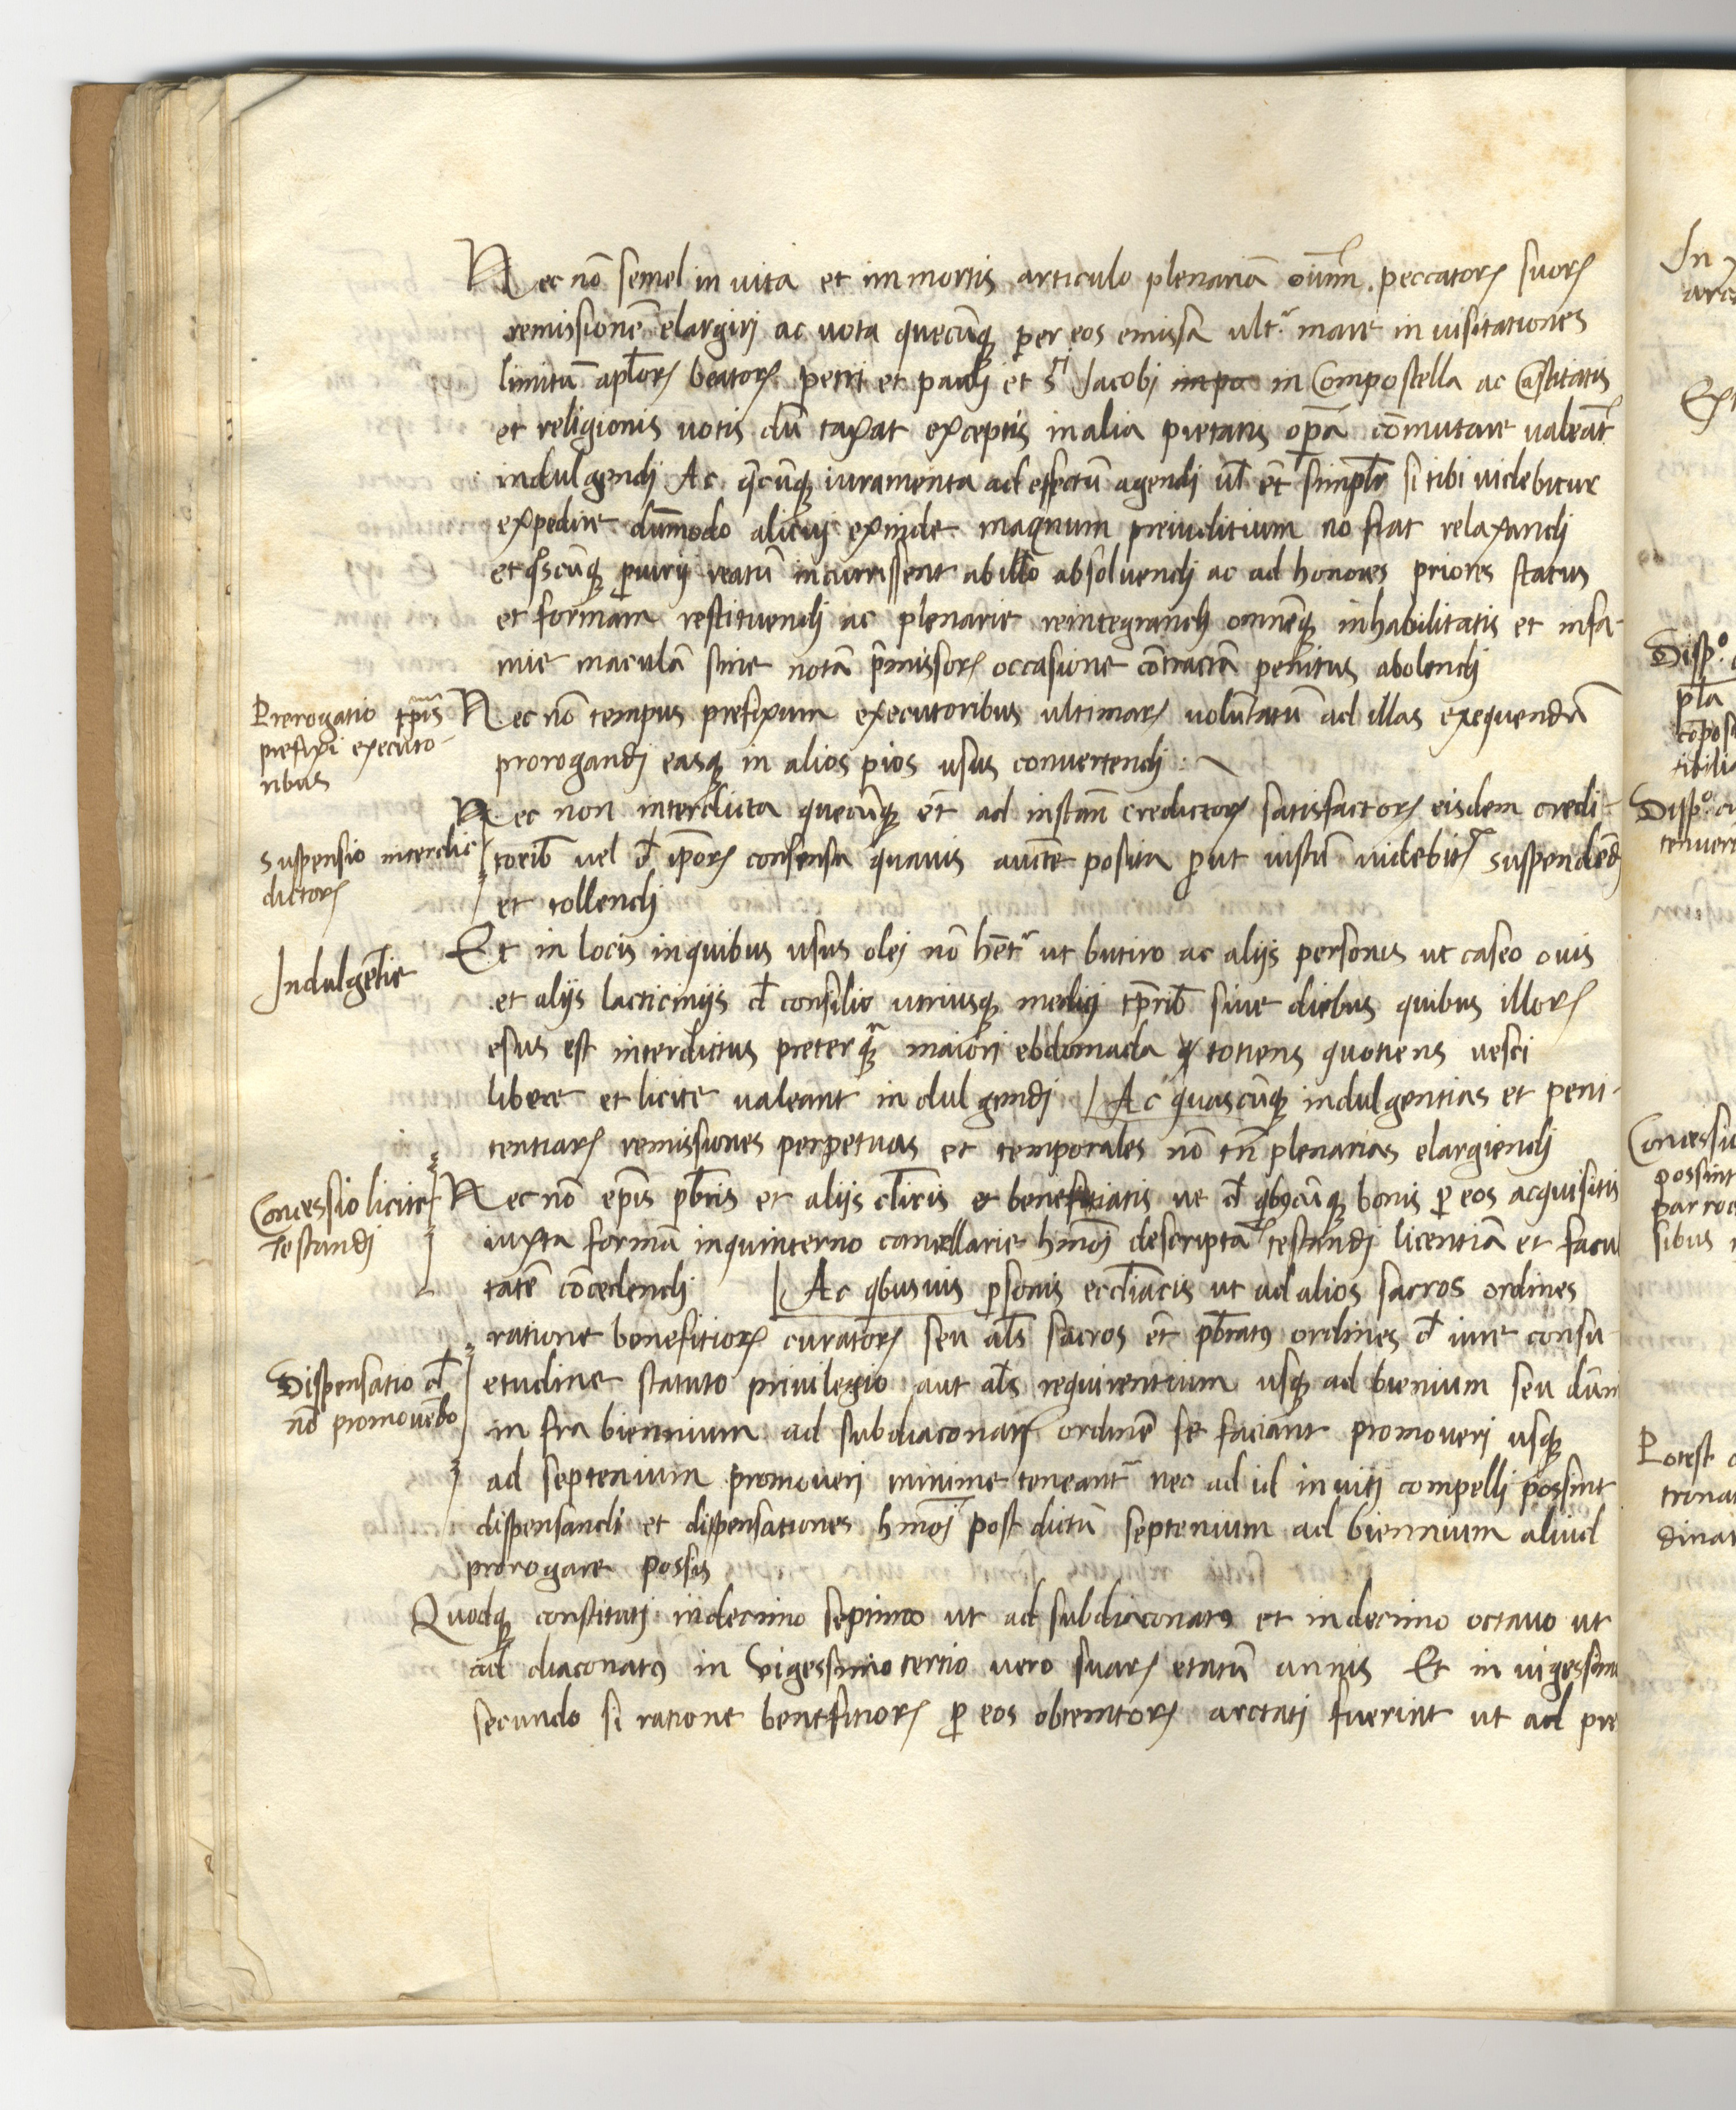 Nec nō semel in vita et im mortis articulo plenariā oīum peccatoꝝ suoꝝ
remissionē elargiri ac vota quecūqꝫ per eos emissa ultͣ mare in visitationes
limitū apl̄oꝝ beatoꝝ petri et pauli et sͥ Jacobi in Compostella ac Castitatis
et religionis votis dū taxat exceptis in alia pietatis oꝑa cōmutare valeāt
indulgendi Ac q̄cūqꝫ iuramenta ad effectū agendi ul̄ et̄ simpl̄r si tibi videbitur
expedire dūmodo alicui exinde magnum preiuditium nō fiat relaxandi
et qͦscūqꝫ ꝑiurij reatū incurrissent ab illo absolvendi ac ad honores priores status
et formam restituendi ac plenarie reintegrandi omnēqꝫ inhabilitatis et infa-
mie maculā sive notā p̄missoꝝ occasione cōtractā penitus abolendi
Prerogatio tp̄is
prefixi executo-
ribus
Nec nō tempus prefixum executoribus ultimaꝝ volūtatū ad illas exequendū
prorogandi easqꝫ in alios pios usus convertendi
Nec non interdicta quecūqꝫ et̄ ad instan̄ credictoꝝ satisfactoꝝ eisdem credi-
Suspensio interdic
dictoꝝ
toribꝰ vel đ ip̄oꝝ consensu quavis auct̄e posita ꝓut iustū videbitᷣ suspendēdi
et tollendi
Indulgētie
Et in locis in quibus usus olei nō hētᷣ ut butiro ac aliis personis ut caseo ovis
et aliis lacticiniis đ consilio utriusqꝫ medici tp̄ribꝰ sive diebus quibus illoꝝ
esus est interdictus preterqͣ̄ maiori ebdomada totiens quotiens vesci
libere et licite valeant indulgendi Ac quascūqꝫ indulgentias et peni-
tentiaꝝ remissiones perpetuas et temporales nō tn̄ plenarias elargiendi
Concessio licite
Testandi
Nec nō ep̄is pb̄ris et aliis cl̄icis et benefitiatis ut đ qͥbꝰcūqꝫ bonis ꝑ eos acquisitis
iuxta formā in quinterno cancellarie hmōi descriptā testandi licentiā et facu
tatē cōcedendi Ac qͥbusuis ꝑsonis eccl̄iacis ut ad alios sacros ordines
ratione benefitioꝝ curatoꝝ seu al̄s sacros et̄ pb̄ratꝰ ordines đ iure consu
Dispensatio đ
nō promovēdo
etudine statuto privilegio aut al̄s requirentium usqꝫ ad bienium seu dūm
infra biennium ad subdiaconatꝰ ordinē se faciant promoveri usqꝫ
ad septenium promoveri minime teneantᷣ nec ad id inviti compelli possint
dispensandi et dispensationes hmōi post dictū septenium ad biennium aliud
prorogare possis
Quodqꝫ constituti in decimo septimo ut ad subdiaconatꝰ et in decimo octavo ut
ad diaconatꝰ in vigessimo tertio vero suaꝝ etatū annis Et in vigessim
secundo si ratione benefitioꝝ ꝑ eos obtentoꝝ arctati fuerint ut ad pre
Dispͦ
pl̄a
Dispͦ
Concessio
possint
sibus
Potest